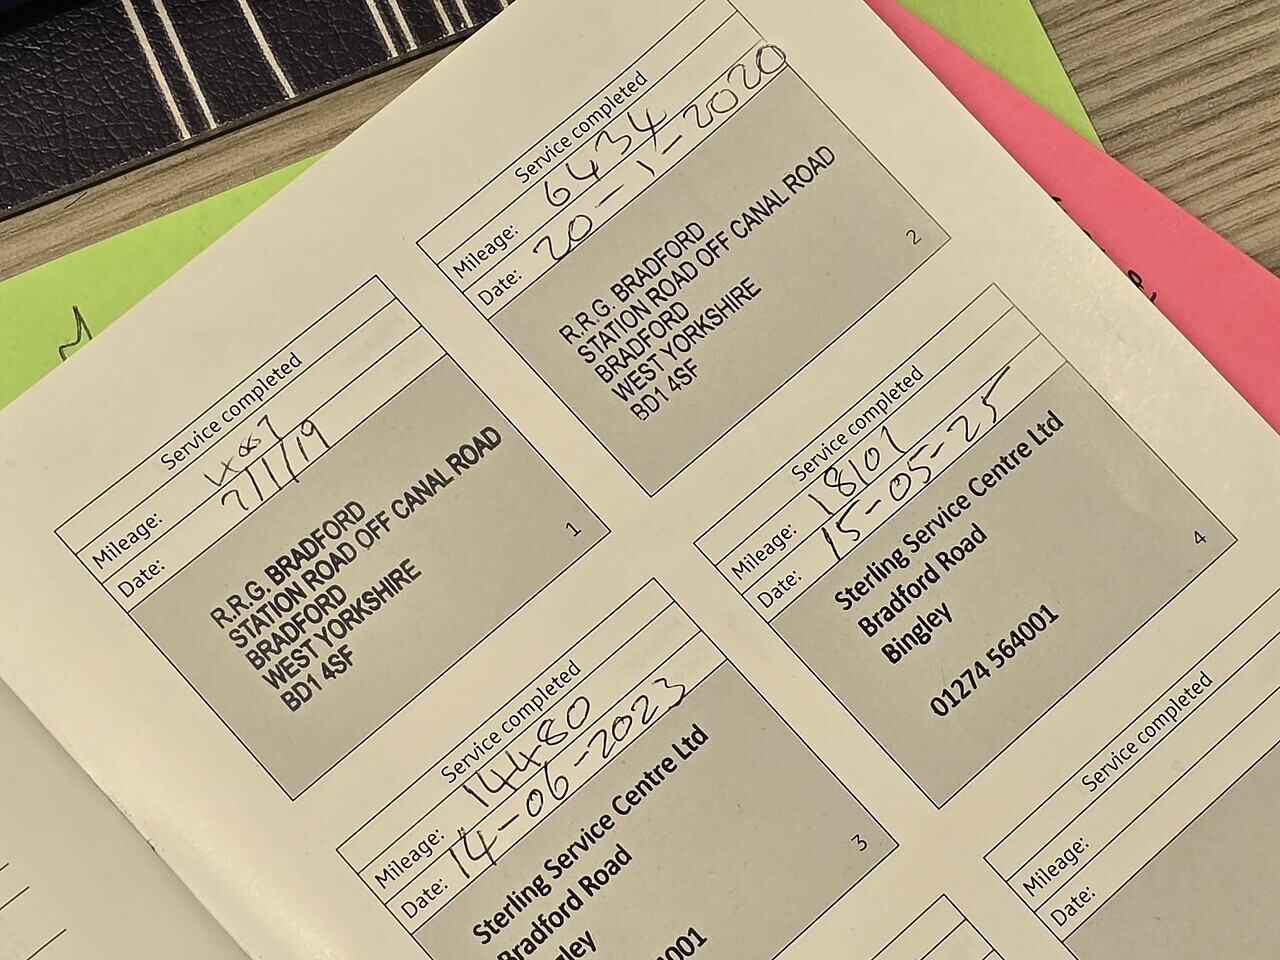 Service completed
Mileage:
Date: 7/1/19
R.R.G. BRADFORD
STATION ROAD OFF CANAL ROAD
BRADFORD
WEST YORKSHIRE
BD1 4SF
1
Service completed
Mileage: 6434
Date: 20-1-2020
R.R.G. BRADFORD
STATION ROAD OFF CANAL ROAD
BRADFORD
WEST YORKSHIRE
BD1 4SF
2
Service completed
Mileage: 14480
Date: 14-06-2023
Sterling Service Centre Ltd
Bradford Road
gley
001
3
Service completed
Mileage: 18107
Date: 15-05-25
Sterling Service Centre Ltd
Bradford Road
Bingley
01274 564001
4
Service completed
Mileage:
Date: